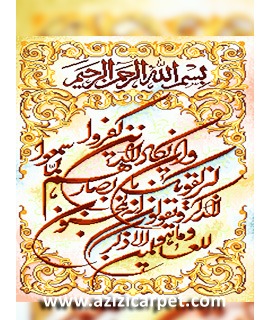 بسم الله الرحمن الرحيم
وان يكاد الذين كفروا
ليزلقونك بابصارهم لما سمعوا
الذكر ويقولون انه لمجنون
وما هو الا ذكر
للعالمين
www.azizicarpet.com